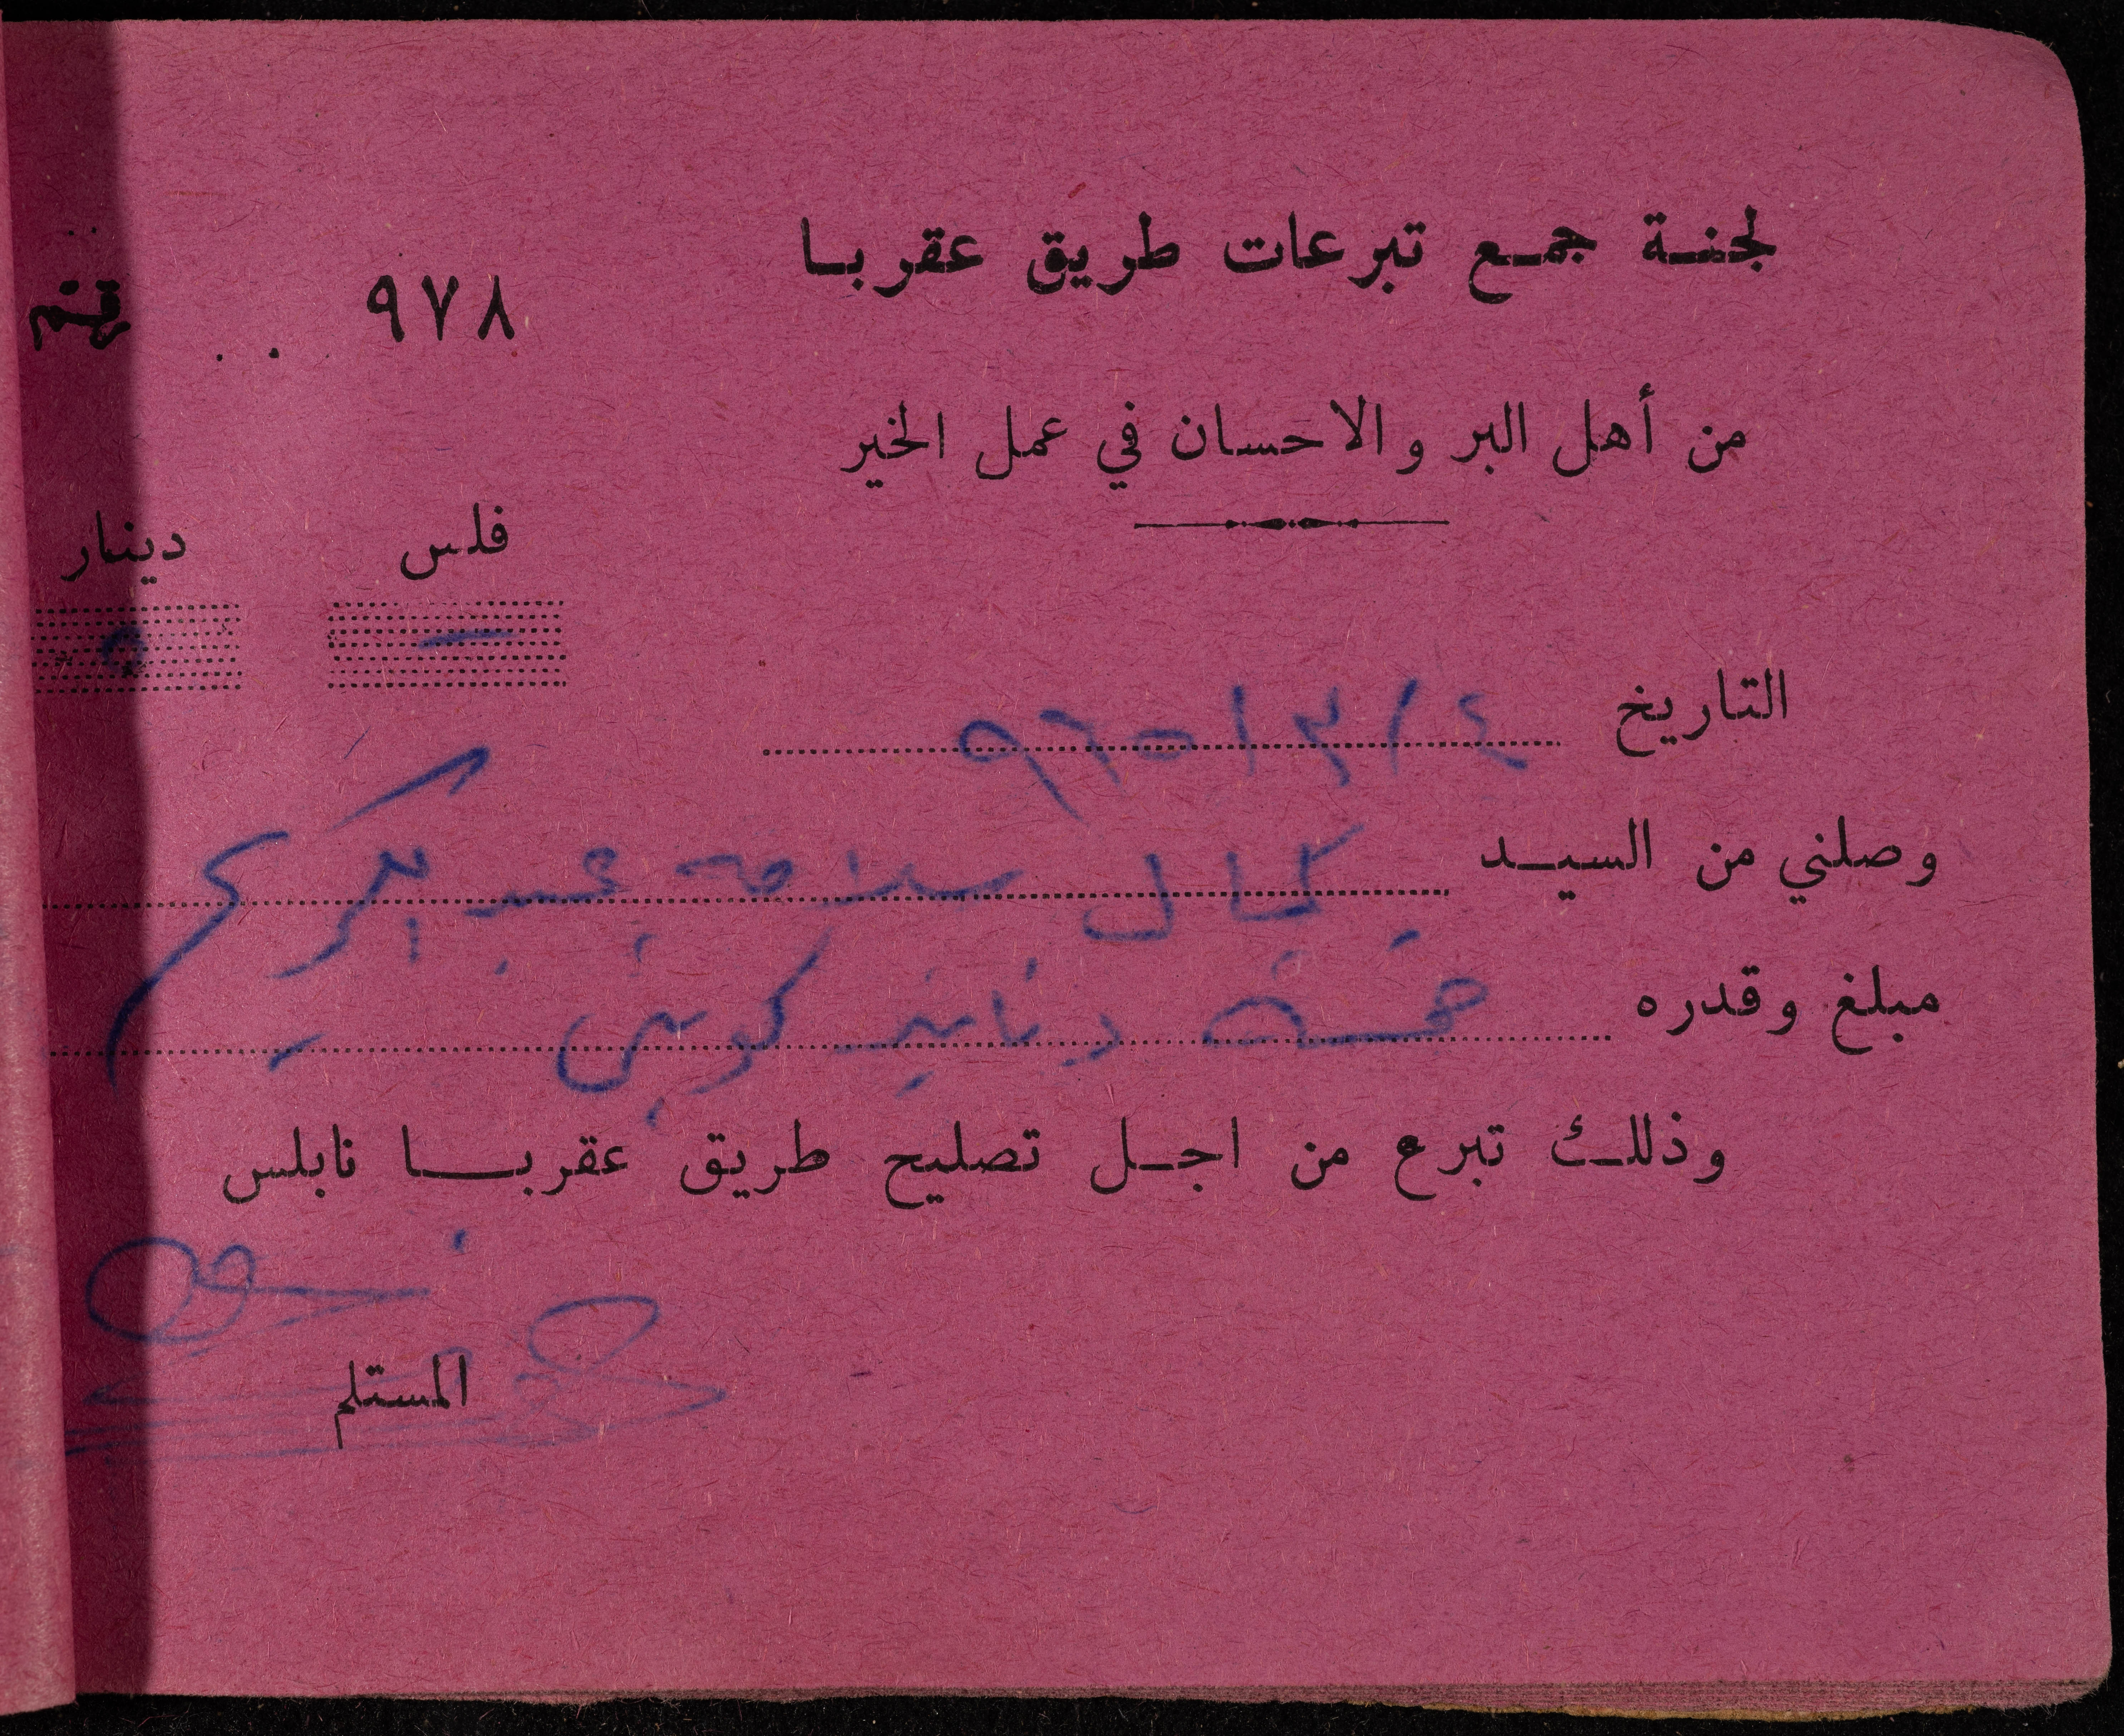 لجنة جمع تبرعات طريق عقربا
رقم ٩٧٨
من أهل البر والاحسان في عمل الخير
فلس دينار
- ٥
التاريخ ٤ / ٣ / ٩٦٥
وصلني من السيد كمال سلامه عبد الكريم
مبلغ وقدره خمسة دنانير كويتي
وذلك تبرع من اجل تصليح طريق عقربا نابلس
المستلم